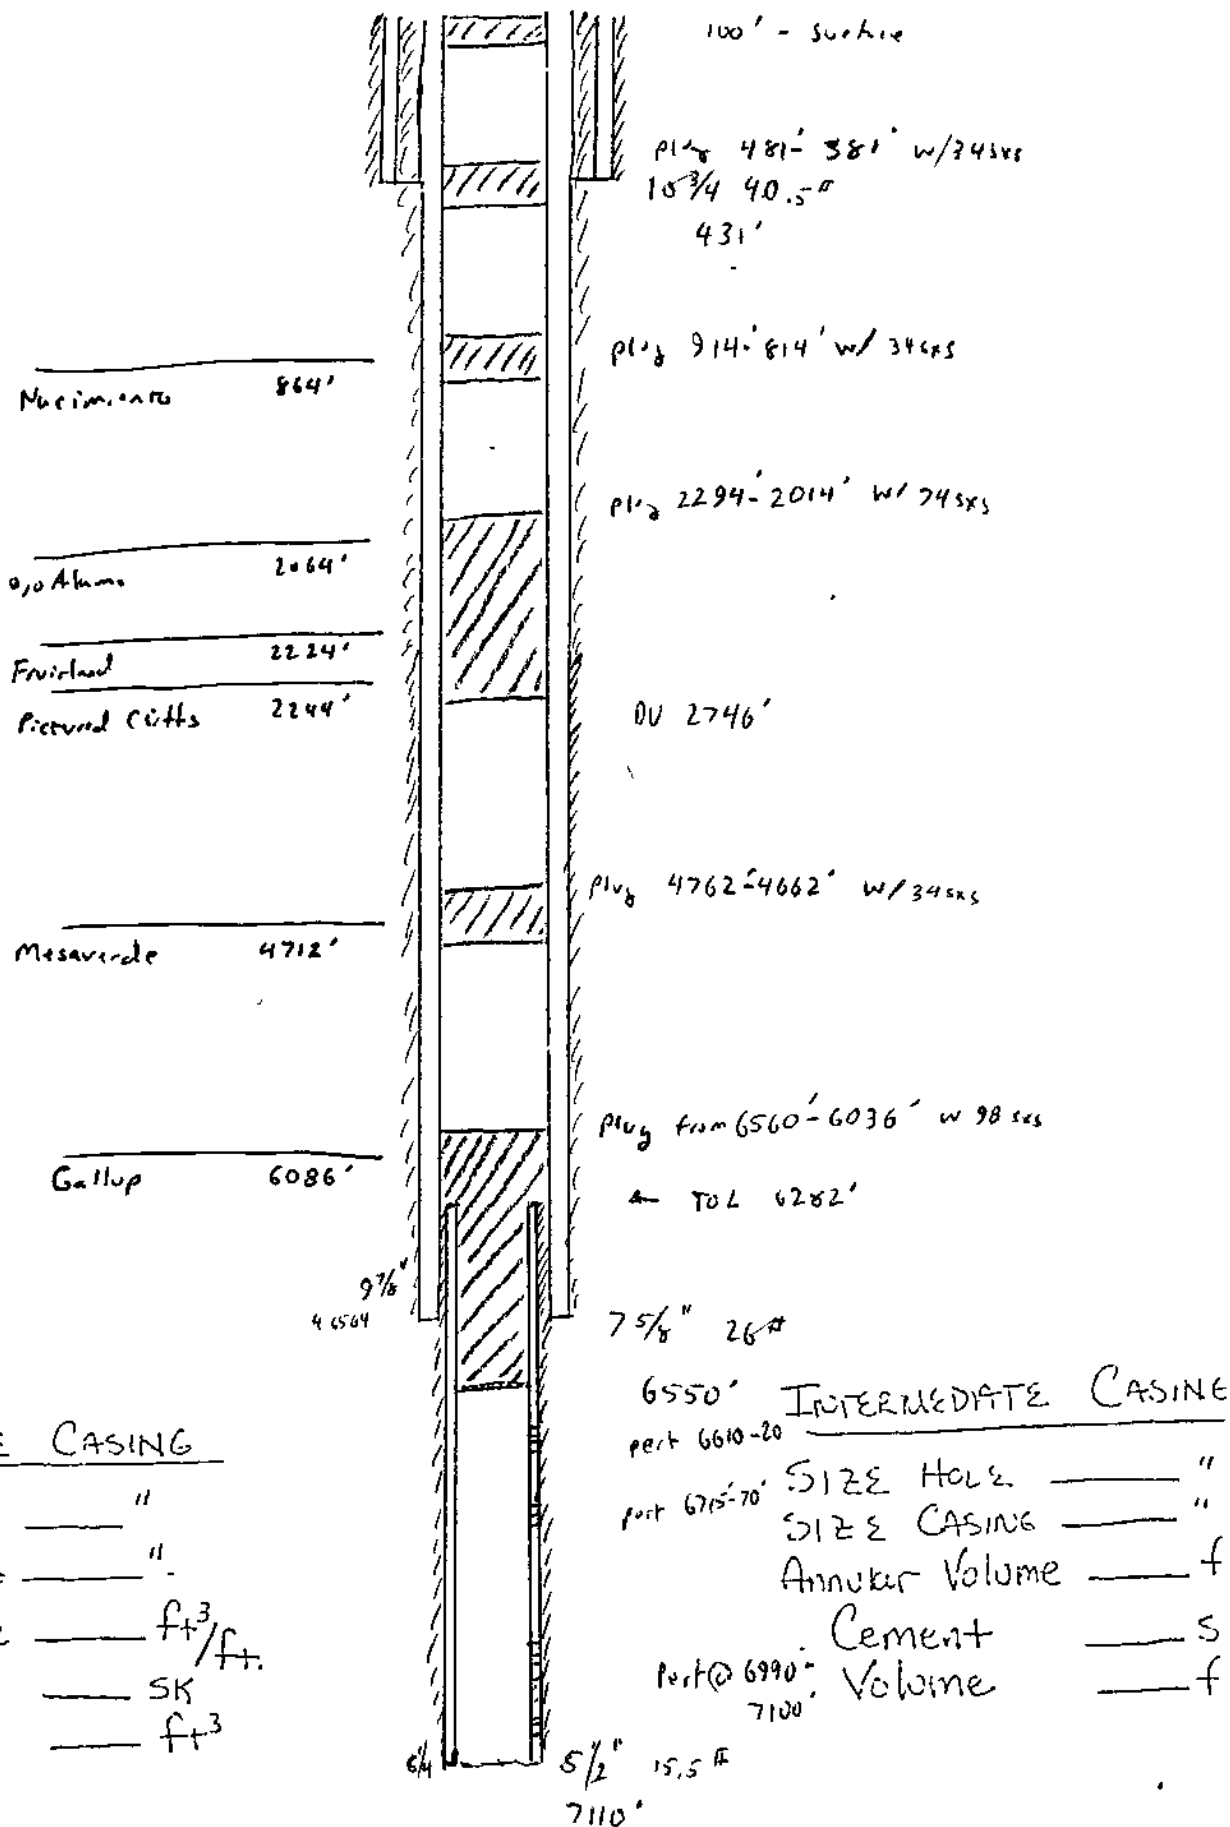 100' - surface
plug 481'- 381' w/34sxs
10 3/4 40.5#
431'
plug 914'-814' w/ 34sxs
Nacimiento 864'
plug 2294'-2014' w/ 74sxs
Ojo Alamo 2064'
Fruitland 2224'
Pictured Cliffs 2244'
DV 2746'
plug 4762'-4662' w/34sxs
Mesaverde 4712'
plug from 6560'-6036' w 98 sxs
Gallup 6086'
← TOL 6282'
9 7/8"
6564
7 5/8" 26#
6550'
INTERMEDIATE CASING
CASING
perf 6610-20
SIZE HOLE ____ "
perf 6715'-70'
SIZE CASING ____ "
____ "
Annular Volume ____ f
____ "
____ ft³/ft.
Cement ____ S
____ SK
Perf @ 6990'-
7100'
Volume ____ f
____ ft³
6 1/4
5 1/2" 15.5#
7110'